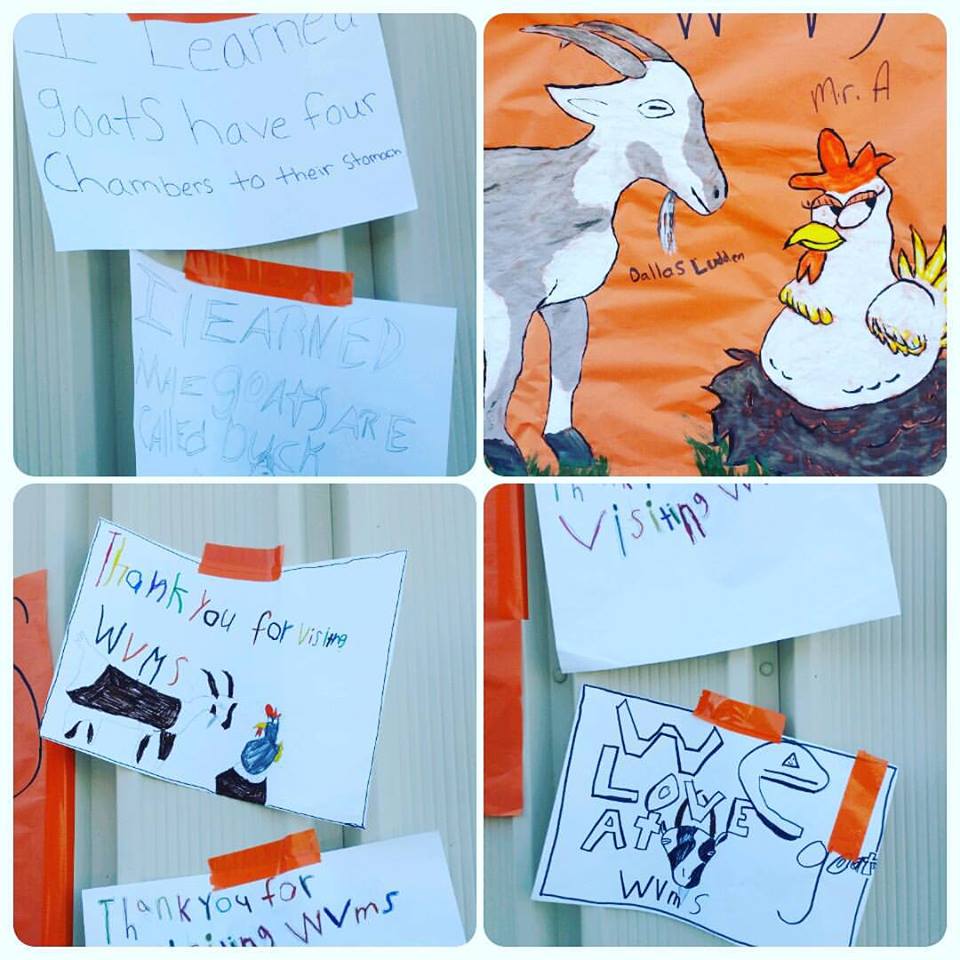 I Learned
goats have four
Chambers to their Stomach
I lEARNED
MALE goats ARE
CAlled bUCK
Mr. A
Dallas Ludden
Thank You for Visiting
WVMS
Thank You for
WVms
Visiting
We
LOVE
At
goat
WVmS